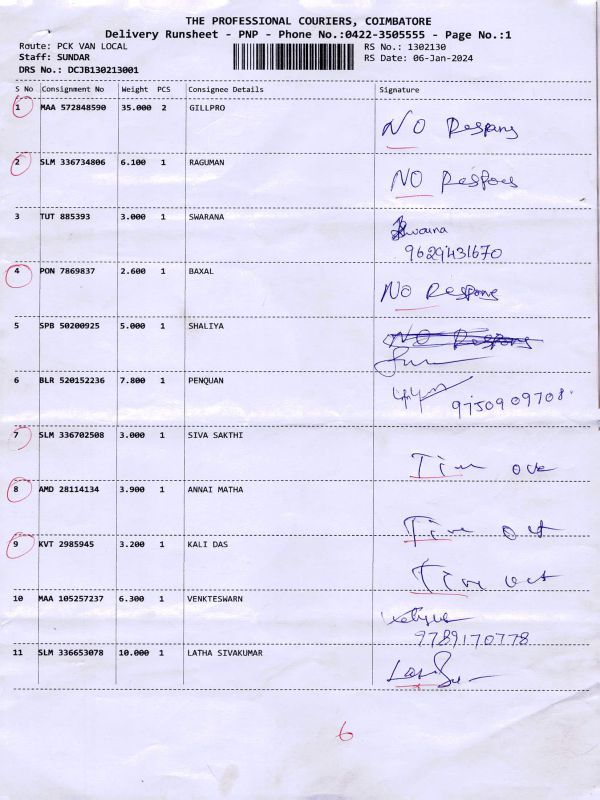 THE PROFESSIONAL COURIERS, COIMBATORE
Delivery Runsheet - PNP - Phone No.:0422-3505555 - Page No.:1
Route: PCK VAN LOCAL RS No.: 1302130
Staff: SUNDAR RS Date: 06-Jan-2024
DRS No.: DCJB130213001
S No Consignment No Weight PCS Consignee Details Signature
1 MAA 572848590 35.000 2 GILLPRO
NO Respons
2 SLM 336734806 6.100 1 RAGUMAN
NO Respons
3 TUT 885393 3.000 1 SWARANA
Swarna
9629431670
4 PON 7869837 2.600 1 BAXAL
NO Respons
5 SPB 50200925 5.000 1 SHALIYA
NO Respons
6 BLR 520152236 7.800 1 PENQUAN
9750909708
7 SLM 336702508 3.000 1 SIVA SAKTHI
Tim out
8 AMD 28114134 3.900 1 ANNAI MATHA
Time out
9 KVT 2985945 3.200 1 KALI DAS
Time out
10 MAA 105257237 6.300 1 VENKTESWARN
9789170778
11 SLM 336653078 10.000 1 LATHA SIVAKUMAR
6